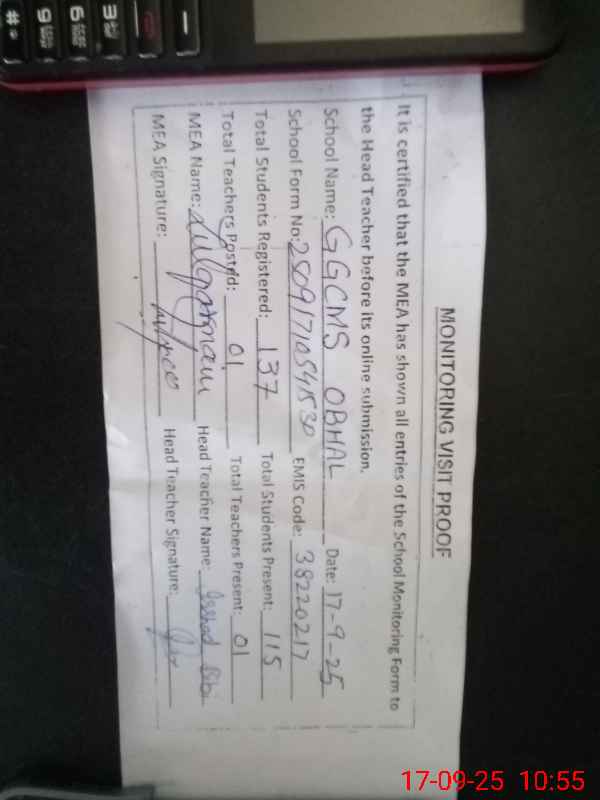 MONITORING VISIT PROOF
It is certified that the MEA has shown all entries of the School Monitoring Form to
the Head Teacher before its online submission.
School Name: GGCMS OBHAL Date: 17-9-25
School Form No: EMIS Code: 38220217
Total Students Registered: 137 Total Students Present: 115
Total Teachers Posted: 01 Total Teachers Present: 01
MEA Name: Head Teacher Name: Irshad Bibi
MEA Signature: Head Teacher Signature:
17-09-25 10:55
3
6
9
#